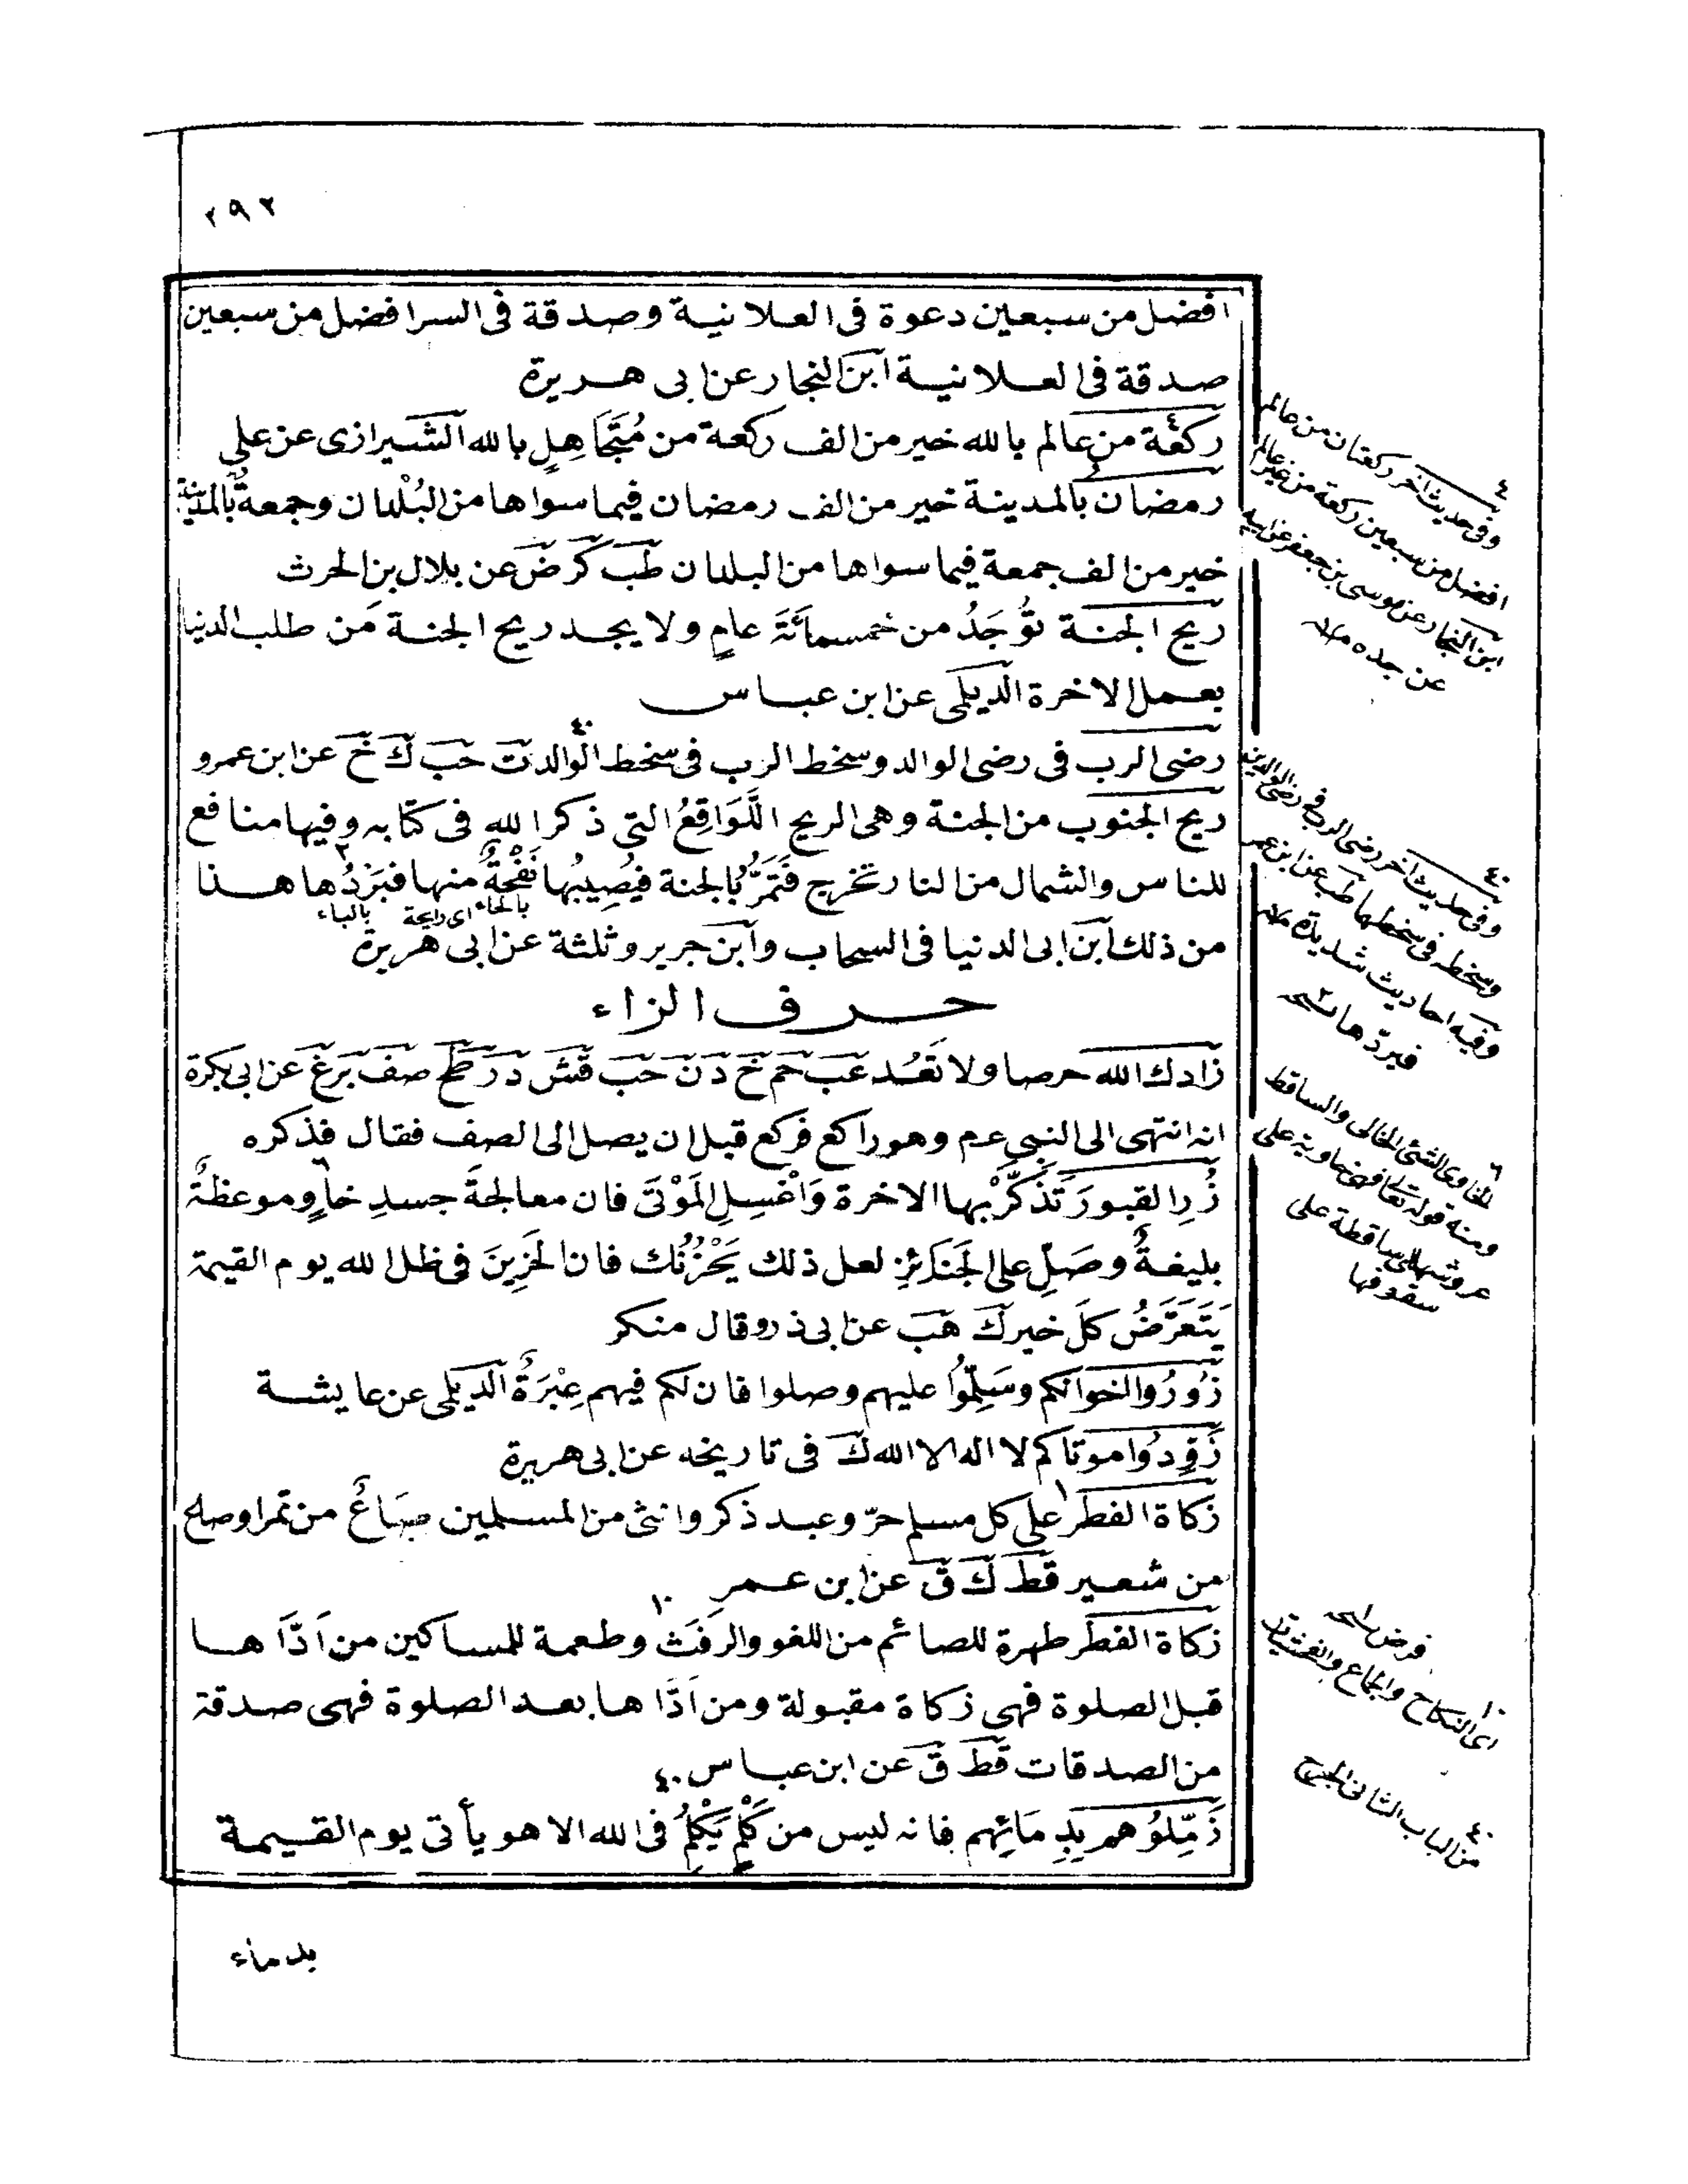 ٢٩٢
افضل من سبعين دعوة فى العلانية وصدقة فى السر افضل من سبعين
صدقة فى العلانية ابن النجار عن ابى هريرة
ركعة من عالم بالله خير من الف ركعة من مُتَجَاهِلٍ بالله الشيرازى عن على
رمضان بالمدينة خير من الف رمضان فيما سواها من البُلْدان وجمعة بالمدينة
خير من الف جمعة فيما سواها من البلدان طب كر ض عن بلال بن الحرث
ريح الجنة تُوجَدُ من خمسمائة عام ولا يجد ريح الجنة من طلب الدنيا
بعمل الاخرة الديلمى عن ابن عباس
رضى الرب فى رضى الوالد وسخط الرب فى سخط الوالد ت حب ك خ عن ابن عمرو
ريح الجنوب من الجنة وهى الريح اللَّوَاقِعُ التى ذكر الله فى كتابه وفيها منافع
للناس والشمال من النار تخرج فَتَمُرُّ بالجنة فيُصِيبُها نَفْحَةٌ منها فبَرْدُها هذا
بالحاء اى رايحة بالباء
من ذلك ابن ابى الدنيا فى السحاب وابن جرير وثلثة عن ابى هريرة
حرف الزاء
زادك الله حرصا ولا تَعُد عب حم خ د ن حب قش در طح صف بر غ عن ابى بكرة
انه انتهى الى النبى عم وهو راكع فركع قبل ان يصل الى الصف فقال فذكره
زُرِ القبورَ تَذَكَّرْ بها الاخرة وَاغْسِلِ المَوْتَى فان معالجةَ جسدِ خاوٍ وموعظةٌ
بليغةٌ وصَلِّ على الجَنَائِزِ لعل ذلك يَحْزُنُك فان الحَزِينَ فى ظل الله يوم القيمة
يَتَعَرَّضُ كلَ خير ك هب عن ابى ذر وقال منكر
زُورُوا اخوانكم وسَلِّمُوا عليهم وصلوا فان لكم فيهم عِبْرَةً الديلمى عن عايشة
زَوِّدُوا موتاكم لا اله الا الله ك فى تاريخه عن ابى هريرة
زكاة الفطر على كل مسلم حرّ وعبد ذكر وانثى من المسلمين صَاعٌ من تمر او صاع
من شعير قط ك ق عن ابن عمر
زكاة الفطر طهرة للصائم من اللغو والرفث وطعمة للمساكين من اَدَّاها
قبل الصلوة فهى زكاة مقبولة ومن اَدَّاها بعد الصلوة فهى صدقة
من الصدقات قط ق عن ابن عباس
زَمِّلُوهم بِدِمَائِهِم فانه ليس من كَلْمٍ يُكْلَمُ فى الله الا هو يأتى يوم القيمة
بدماء
٤
وفى حديث اخر ركعتان من عالم
افضل من سبعين ركعة من غير عالم
ابن النجار عن موسى بن جعفر عن ابيه
عن جده
٤٠
وفى حديث اخر رضى الرب فى رضى الوالدين
وسخطه فى سخطهما طب عن ابن عمر
وفيه احاديث شديدة
فبردها نسخه
٦
الخاوى الشئ الخالى والساقط
ومنه قوله تعالى فهى خاوية على
عروشها اى ساقطة على
سقوفها
فرض نسخه
١٠
اى النكاح والجماع والفحشيات
٤٠
من الباب الثانى الجرح